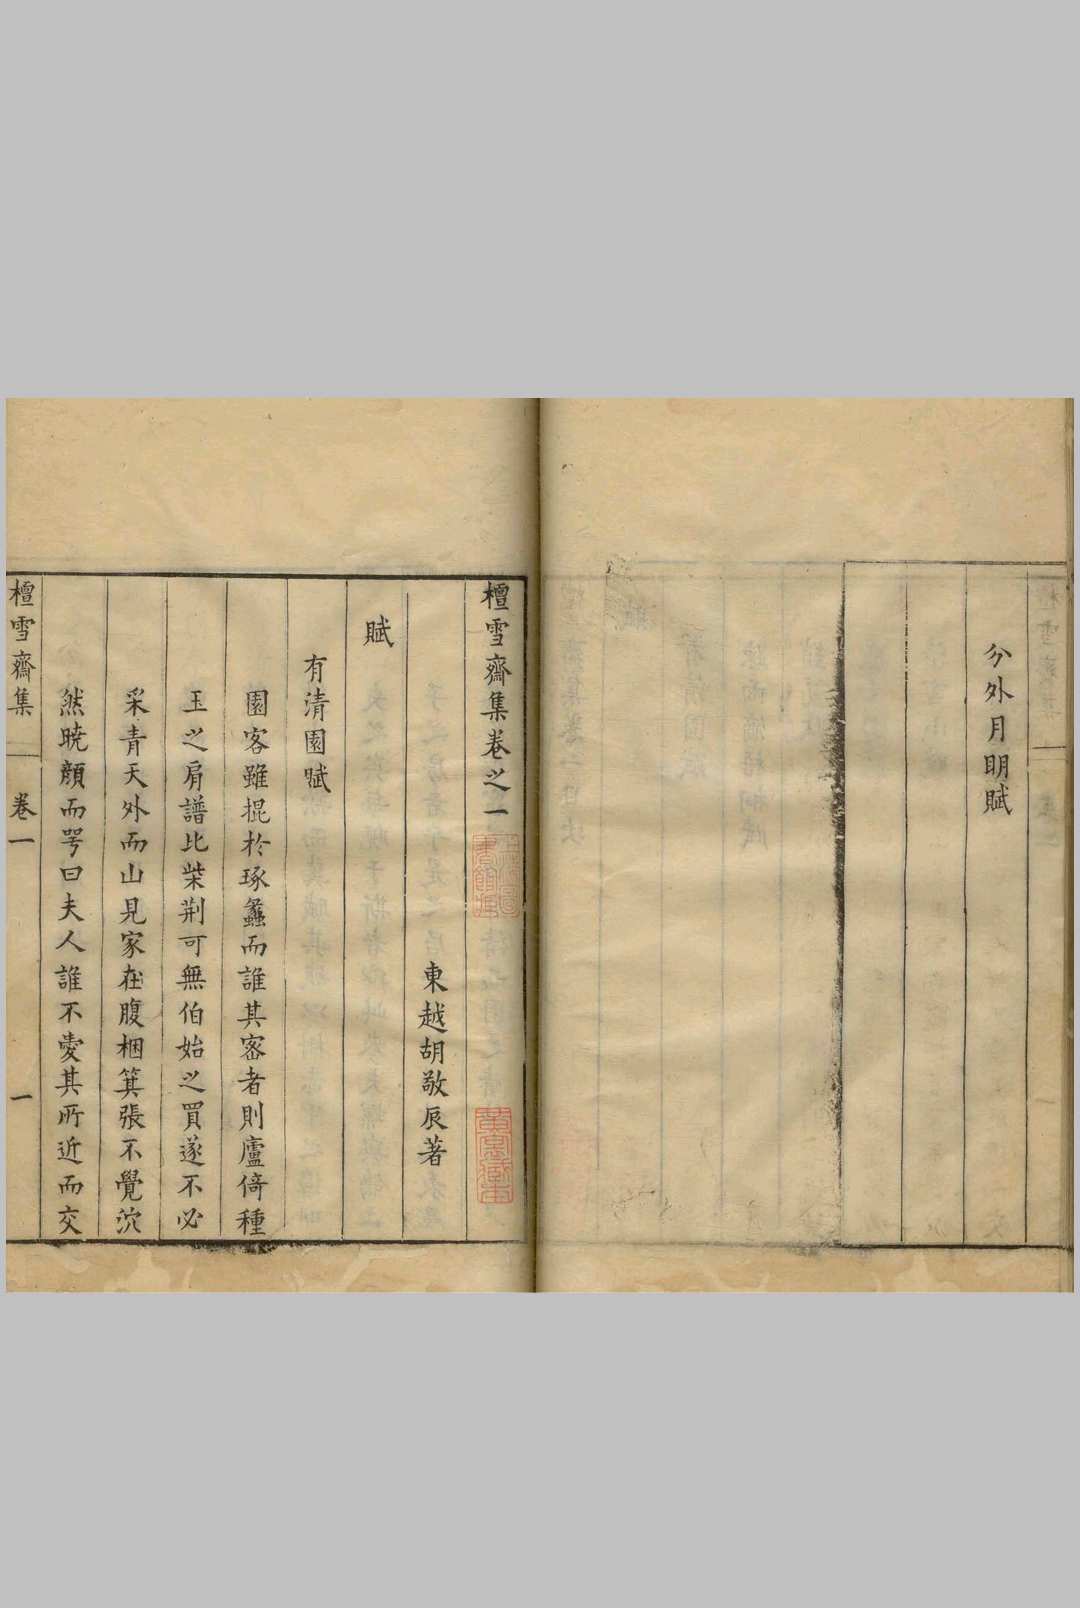 分外月明賦
檀雪齋集卷之一
東越胡敬辰著
賦
有清園賦
園客雖掍於琢蠡而誰其密者則廬倚種
玉之肩譜比柴荆可無伯始之買遂不必
采青天外而山見家在腹梱箕張不覺泬
然曉顔而咢曰夫人誰不愛其所近而交
檀雪齋集
卷一
一